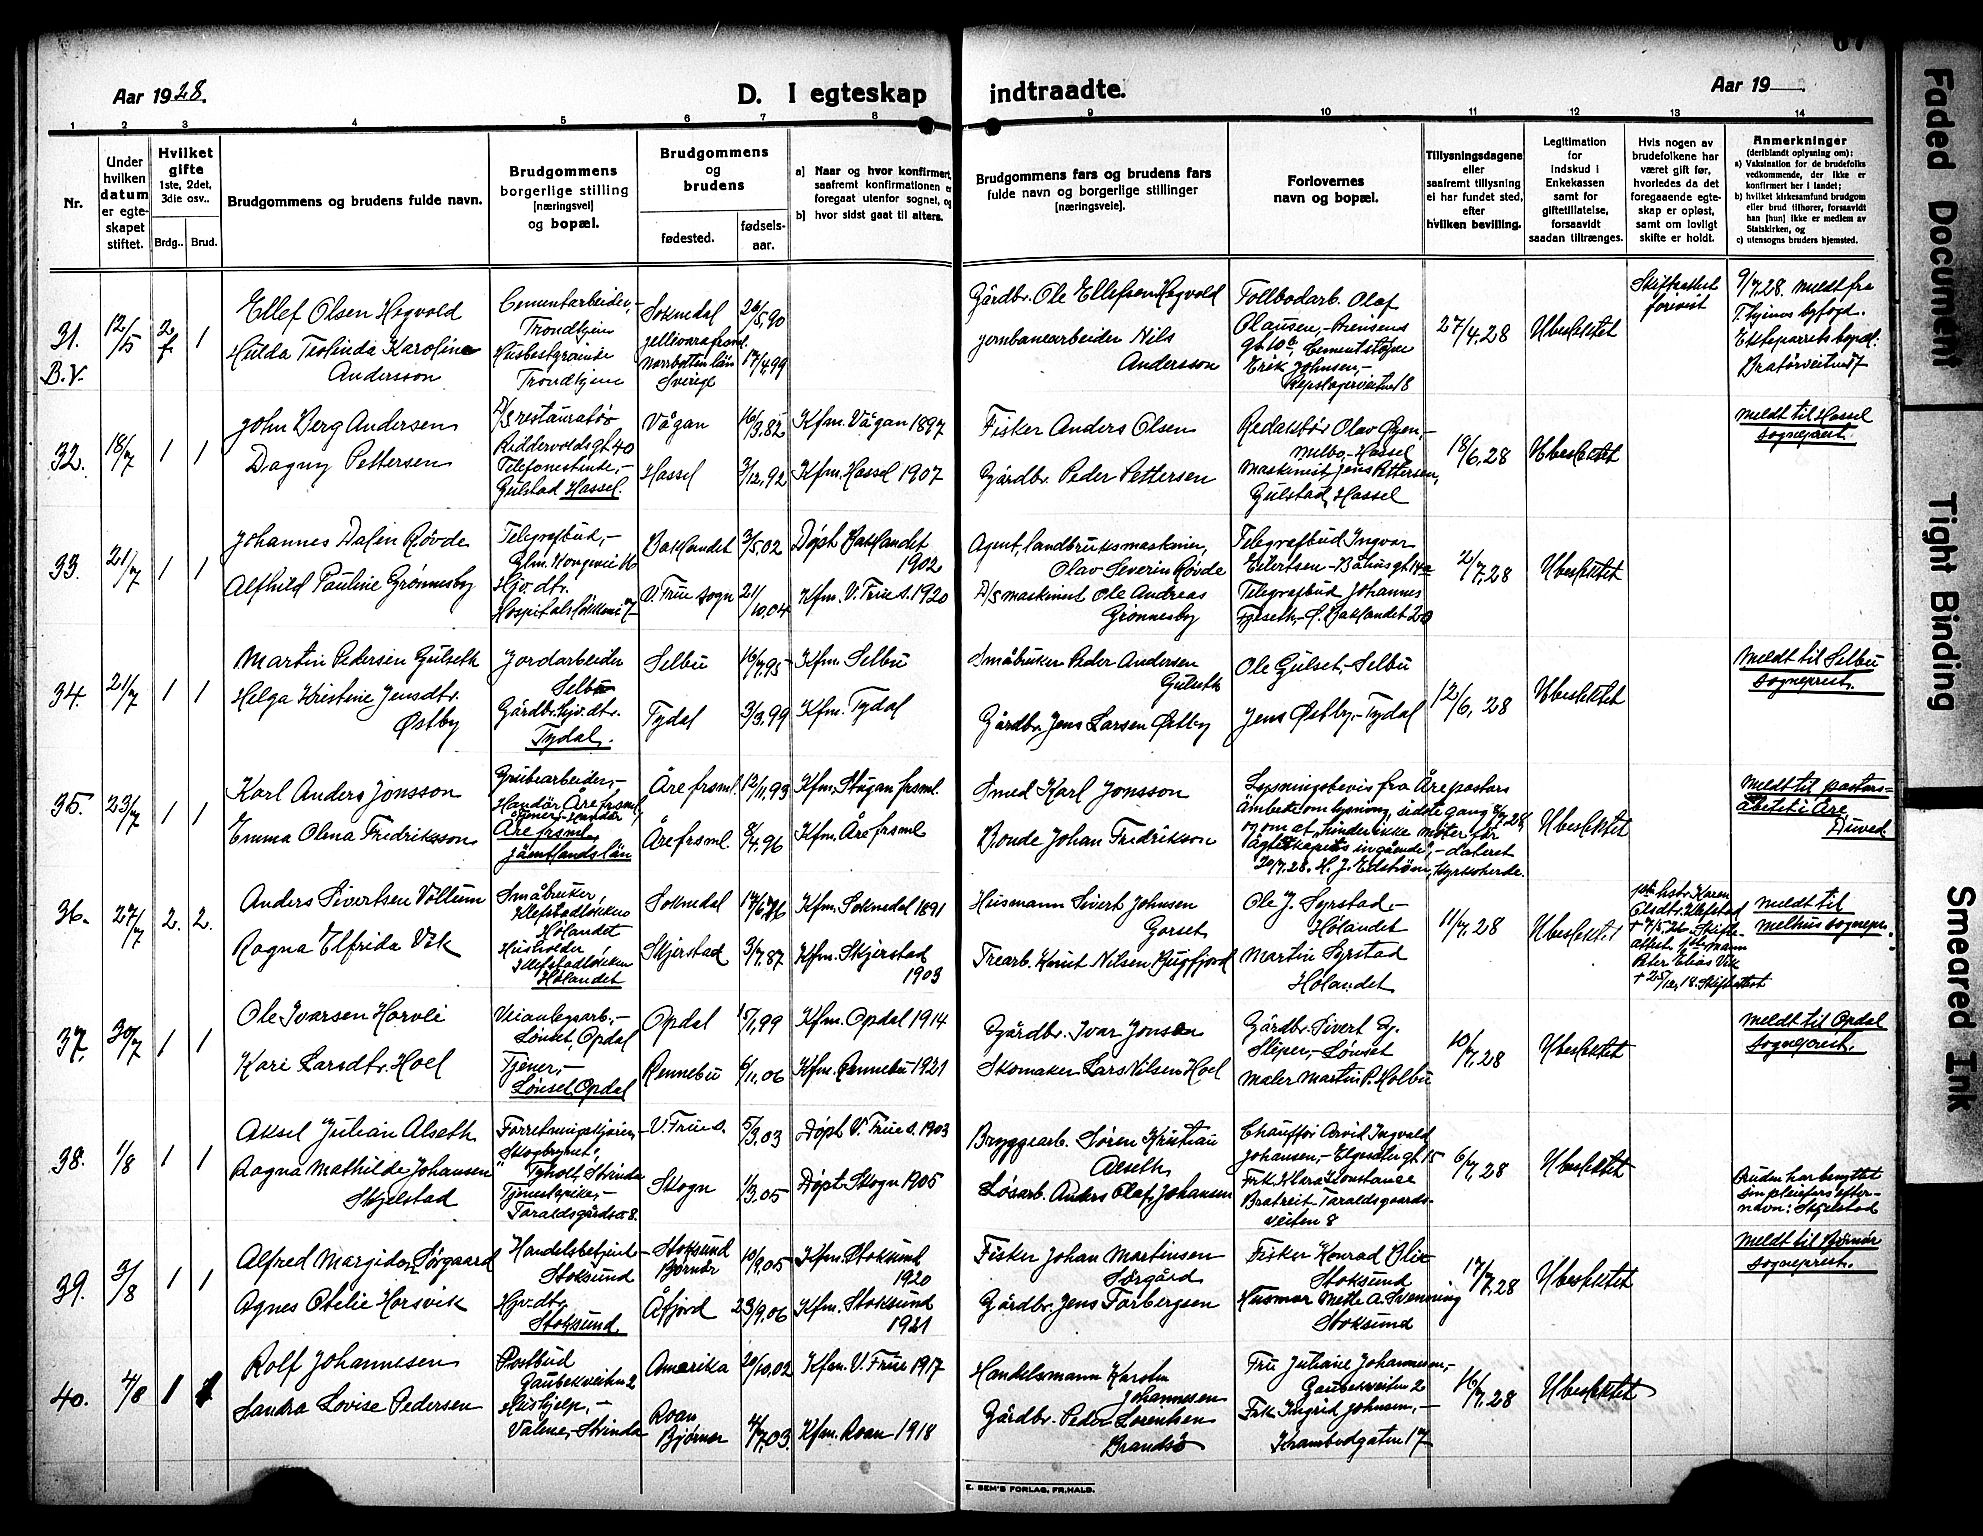 Aar 1928.
D. I egteskap
indtraadte.
Aar 19
1 2 3 4 5 6 7 8 9 10 11 12 13 14
Nr.
Under hvilken datum er egteskapet stiftet.
Hvilket gifte 1ste, 2det, 3die osv..
Brdg.. Brud.
Brudgommens og brudens fulde navn.
Brudgommens borgerlige stilling [næringsvei] og bopæl.
Brudgommens og brudens
fødested.
fødsels-aar.
a) Naar og hvor konfirmert, saafremt konfirmationen er foregaat utenfor sognet, og
b) hvor sidst gaat til alters.
Brudgommens fars og brudens fars fulde navn og borgerlige stillinger [næringsveie].
Forlovernes navn og bopæl.
Tillysningsdagene eller saafremt tillysning ei har fundet sted, efter hvilken bevilling.
Legitimation for indskud i Enkekassen samt for giftetillatelse, forsaavidt saadan tiltrænges.
Hvis nogen av brudefolkene har været gift før, hvorledes da det foregaaende egteskap er opløst, samt om lovligt skifte er holdt.
Anmerkninger
(deriblandt oplysning om):
a) Vaksination for de brudefolks vedkommende, der ikke er konfirmert her i landet;
b) hvilket kirkesamfund brudgom eller brud tilhører, forsaavidt han [hun] ikke er medlem av Statskirken, og
c) utensogns bruders hjemsted.
31. B.V.
12/5
2 f. 1
Ellef Olsen Hogvold
Hulda Teolinda Karolina Andersson
Cementarbeider,- Trondhjem
Husbestyrerinde Trondhjem
Soknedal 26/5,90
Jellivara framl. Norrbotten län Sverige 17/4,99
Gårdbr. Ole Ellefsen Hogvold
Jernbanearbeider Nils Andersson
Tollbodarb. Olaf Olausen,- Arensens gt. 10a, Cementstøper Erik Johnsen,- Repslagerveiten 18
27/4.28
Ubeskattet
Skifteattest forevist
9/7.28. meldt fra T.hjems byfogd. Ekteparrets bopæl: Bratørveiten 7
32.
18/7
1 1
John Berg Andersen
Dagny Pettersen
D/s restauratør Riddervoldsgt. 40
Telefonistinde,- Gulstad Hassel.
Vågan 16/3.82 Kfm. Vågan 1897
Hassel 3/12,92 Kfm. Hassel 1907
Fisker Anders Olsen
Gårdbr. Peder Pettersen
Redaktør Olav Øyen,- Melbo,- Hassel
Maskinist Jens Pettersen, Gulstad, Hassel
18/6,28
Ubeskattet
Meldt til Hassel sogneprest
33.
21/7
1 1
Johannes Dalen Røvde
Alfhild Pauline Grønnesby
Telegrafbud,- Glm. Kongevei 16
Hjv. dtr. Hospitalsløkkens 7
Baklandet 3/5.02 Døpt Baklandet 1902
V. Frue sogn 21/10,04 Kfm. V. Frue s. 1920
Agent, landbruksmaskiner, Olav Severin Røvde
D/s maskinist Ole Andreas Grønnesby
Telegrafbud Ingvar Eilertsen - Båhusgt. 14a
Telegrafbud Johannes Fjeseth,- Ø. Baklandet 20
2/7,28
Ubeskattet
34.
21/7
1 1
Martin Pedersen Gulseth
Helga Kristine Jensdtr. Østby
Jordarbeider Selbu
Gårdbr. hjv. dtr. Tydal.
Selbu 16/7.95 Kfm. Selbu
Tydal 3/3.99 Kfm. Tydal
Småbruker Peder Andersen Gulseth
Gårdbr. Jens Larsen Østby
Ole Gulset,- Selbu
Jens Østby,- Tydal
12/6,28
Ubeskattet
Meldt til Selbu sogneprest.
35.
23/7
1 1
Karl Anders Jonsson
Emma Olena Fredriksson
Grubearbeider,- Handør Åre frsml.
Tjener,- Handør Åre frsml. Jämtlands län
Åre frsml. 12/11,93 Kfm. Stugan frsml.
Åre frsml. 8/4.96 Kfm. Åre frsml
Smed Karl Jonsson
Bonde Johan Fredrikson
Lysningsbevis fra Åre pastorsämbete om lysning, sidste gang 8/7.28, og om at „hinder ikke möter för äktenskapets ingående", - dateret 20/7.28. H. J. Edström, Kyrkoherde.
Ubeskattet
Meldt til pastorsämbetet i Åre Duved
36.
27/7
2. 2.
Anders Sivertsen Vollum
Ragna Elfrida Vik
Småbruker, Klefstadløkken Hølandet
Husholder, Klefstadløkken Hølandet
Soknedal 17/6,76 Kfm. Soknedal 1891
Skjerstad 3/7,87 Kfm. Skjerstad 1903
Husmann Sivert Johnsen Gorset
Trearb. Knut Nilsen Rugfjord
Ole J. Syrstad - Hølandet
Martin Syrstad Hølandet
11/7,28
Ubeskattet
Karen Olsdtr. Klefstad + 7/5,26. Skifteattest. Peter Elias Vik + 25/12,18. Skifteattest
Meldt til Melhus sognepr.
37.
30/7
1 1
Ole Ivarsen Horvli
Kari Larsdtr. Hoel
Veianlegsarb.,- Lønset, Opdal
Tjener,- Lønset, Opdal
Opdal 15/1,99 Kfm. Opdal 1914
Rennebu 6/11.06 Kfm. Rennebu 1921
Gårdbr. Ivar Jonsen
Skomaker Lars Nilsen Hoel
Gårdbr. Sivert G. Sliper,- Lønset
Maler Martin P. Holbu
10/7,28
Ubeskattet
Meldt til Opdal sogneprest.
38.
1/8
1 1
Aksel Julian Alseth
Ragna Mathilde Johansen Skjelstad
Forretningskjører,- Skogbrynet, Tyholt, Strinda
Tjenestepike,- Taraldsgårdsv. 8.
V. Frue s. 5/3.03 Døpt V. Frue s. 1903
Skogn 1/3.05 Døpt Skogn 1905
Bryggearb. Søren Kristian Alseth
Løsarb. Anders Olaf Johansen
Chauffør Arvid Ingvald Johansen,- Elgesetergt. 15
Frk. Klara Konstanse Bratreit - Taraldsgaardsveiten 8
6/7,28
Ubeskattet
Bruden har benyttet sin pleiefars efternavn: Skjelstad
39.
3/8
1 1
Alfred Margido Sørgaard
Agnes Otelie Horsvik
Handelsbetjent - Stoksund
Hjv. dtr. Stoksund
Stoksund Bjørnør 10/9.05 Kfm. Stoksund 1920
Åfjord 23/9.06 Kfm. Stoksund 1921
Fisker Johan Martinsen Sørgård
Gårdbr. Jens Torbergsen
Fisker Konrad Blix Stoksund
Husmor Mette A. Svenning Stoksund
17/7,28
Ubeskattet
Meldt til Bjørnør sogneprest.
40.
4/8
1 1
Rolf Johannesen
Sandra Lovise Pedersen
Postbud Gaubekveiten 2
Hushjelp,- Valene,- Strinda
Amerika 20/10,02 Kfm. V. Frue 1917
Roan Bjørnør 4/7,03. Kfm. Roan 1918
Handelsmann Karsten Johannesen
Gårdbr. Peder Lorentsen Brandsø
Fru Juliane Johannesen,- Gaubekveiten 2
Frk. Ingrid Johnsen,- Krambodgaten 17
16/7,28
Ubeskattet
E. SEM'S FORLAG, FR.HALD.
Faded Document
Tight Binding
Smeared Ink